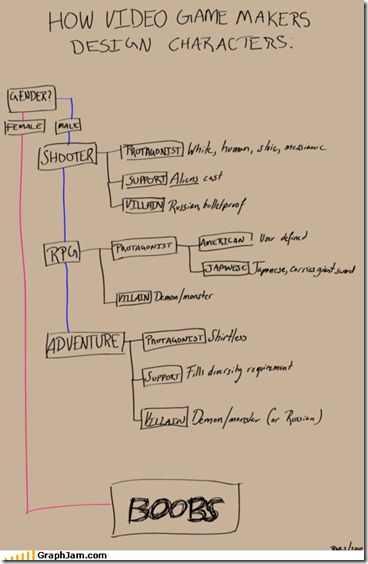 HOW VIDEO GAME MAKERS
DESIGN CHARACTERS:
GENDER?
FEMALE
MALE
SHOOTER
PROTAGONIST White, human, stoic, messianic
SUPPORT Aliens cast
VILLAIN Russian, bulletproof
RPG
PROTAGONIST
AMERICAN User defined
JAPANESE Japanese, carries giant sword
VILLAIN Demon/monster
ADVENTURE
PROTAGONIST Shirtless
SUPPORT Fills diversity requirement
VILLAIN Demon/monster (or Russian)
BOOBS
GraphJam.com